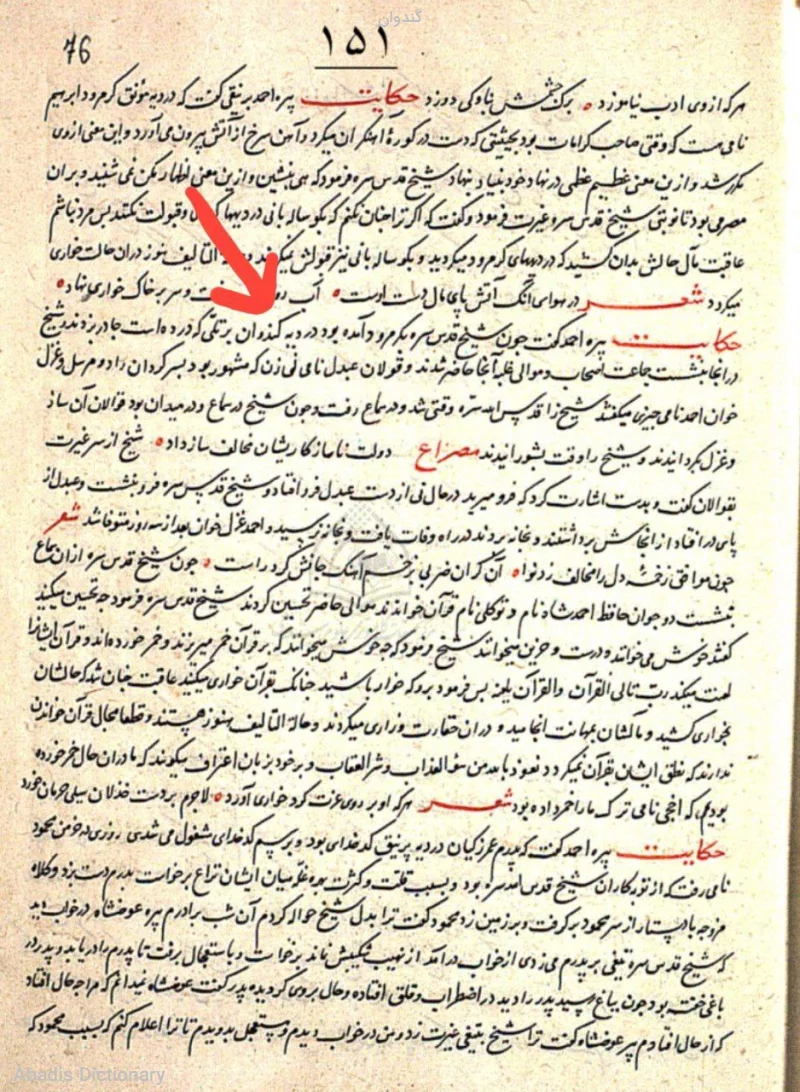 گندوان
76
۱۵۱
هر که از وی ادب نیاموزد برک چشمش بناوکی دوزد حکایت پیره احمد برنیقی کفت که در دیه مونق کرمرود ابرهیم
نامی هست که وقتی صاحب کرامات بود بحیثیتی که دست در کورهٔ آهنکران میکرد و آهن سرخ از آتش بیرون می‌آورد و این معنی از وی
مکرر شد و ازین معنی عظیم عظمی در نهاد خود بنیاد نهاد شیخ قدس سره فرمود که هی بنشین و ازین معنی اظهار مکن نمی‌شنید و بر ان
مصر می‌بود تا نوبتی شیخ قدس سره غیرت فرمود و کفت که اکر ترا چنان نکنم که بکوساله بانی در دیهها و قبولت نکنند پس مرد نباشم
عاقبت مآل حالش بدان کشید که در دیههای کرمرود میکردید و بکوساله بانی نیز قولش میکردند التالیف هنوز دران حالت خواری
میکردد شعر در هوای آنک آتش پای مال دست اوست آب و سر بر خاک خواری نهاد
حکایت پیره احمد کفت چون شیخ قدس سره بکرمرود آمده بود در دیه کندوان بر تلی که در ده است چادر بزدند شیخ
در آنجا بنشست جماعت اصحاب و موالی غلبه آنجا حاضر شدند و قولان عبدل نامی نی زن که مشهور بود بسرکردان راد و مرسل و غزل
خوان احمد نامی چیزی میکفتند شیخ را قدس الله سره وقتی شد و در سماع رفت و چون شیخ در سماع و در میدان بود قوالان آن ساز
و غزل بکردانیدند و شیخ را وقت بشورانیدند مصراع دولت ناساز کار ایشان مخالف ساز داد شیخ از سر غیرت
بقوالان کفت و بدست اشارت کرد که فرو میرید در حال نی از دست عبدل فرو افتاد و شیخ قدس سره فرو نشست و عبدل از
پای در افتاد از انجاش برداشتند و نخانه بردند در راه وفات یافت و نخانه نرسید و احمد غزل خوان بعد از سه روز متوفا شد شعر
چون موافق زخمهٔ دل را مخالف زد نوا آن کران ضربی بزخم آهنک جانش کرد راست چون شیخ قدس سره از ان سماع
بنشست دو جوان حافظ احمد شاه نام و توکلی نام قرآن خواندند موالی حاضر تحسین کردند شیخ قدس سره فرمود چه تحسین میکنید
کفتند خوش می‌خوانند و درست و حزین میخوانند شیخ فرمود که چه خوش میخوانند که بر قرآن خمر میریزند و خمر خورده‌اند و قرآن ایشانرا
لعنت میکند رب تالی القرآن والقرآن یلعنه پس فرمود برو که خوار باشید چنانک بقرآن خواری میکنید عاقبت چنان شد که حالشان
بخواری کشید و مآلشان بمهانت انجامید و دران حقارت و زاری میکردند و حالة التالیف هنوز هستند و قطعا مجال قرآن خواندن
ندارند که نطق ایشان بقرآن نمیکردد نعوذ بالله من سوء العذاب و شر العقاب و بر خود بزبان اعتراف میکویند که ما دران حال خمر خورده
بودیم که اخی نامی ترک ما را خمر داده بود شعر هر که او بر روی عزت کرد خواری آورد لاجرم بر دست خذلان سیلی حرمان خورد
حکایت پیره احمد کفت که پدرم عمر زکیان در دیه برنیق کدخدای بود و برسم کدخدای مشغول می‌شدی روزی در خرمن محمود
نامی رفت که از توبه‌کاران شیخ قدس الله سره بود و بسبب قلت و کثرت بهره غله میان ایشان نزاع برخاست پدرم دست بزد و کلاه
مزوجه با دستار از سر محمود برکرفت و بر زمین زد محمود کفت ترا بدل شیخ حواله کردم آن شب برادرم پیره عوضشاه در خواب دید
که شیخ قدس سره تیغی بر پدرم می‌زدی از خواب درآمد از نهیب شکیبش نماند برخاست و باستعجال برفت تا پدرم را دریابد و پدر در
باغی خفته بود چون بباغ رسید پدر را دید در اضطراب و قلق افتاده و حال بر وی کردیده پدر کفت عوضشاه نمیدانم که مرا چه حال افتاد
که از حال افتادم پیر عوضشاه کفت ترا شیخ بتیغی غیرت زد و من در خواب دیدم و مستعجل بدویدم تا ترا اعلام کنم که بسبب محمود که
Abadis Dictionary